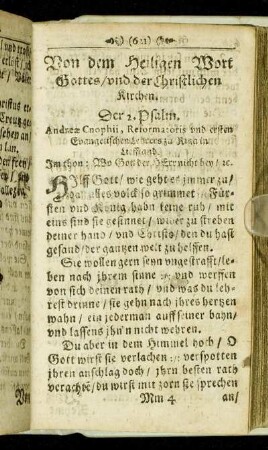 (621)
Von dem Heiligen Wort
Gottes/ vnd der Christlichen
Kirchen.
Der 2. Psalm.
Andreæ Cnophii, Reformatoris vnd ersten
Evangelischen Lehrers zu Riga in
Lieffland.
Im thon: Wo Gott der HErr nicht bey/ ꝛc.
HIlff Gott/ wie geht es jmmer zu/
daß alles volck so grimmet/ Für-
sten vnd König haben keine ruh/ mit
eins sind sie gesinnet/ wider zu streben
deiner hand/ vnd Christo/ den du hast
gesand/ der gantzen welt zu helffen.
Sie wollen gern seyn vngestrafft/ le-
ben nach jhrem sinne :|: vnd werffen
von sich deinen rath/ vnd was du leh-
rest drinne/ sie gehn nach jhres hertzen
wahn/ ein jederman auff seiner bahn/
vnd lassens jhn'n nicht wehren.
Du aber in dem Himmel doch/ O
Gott wirst sie verlachen :|: verspotten
jhren anschlag doch/ jhrn besten rath
verachtẽ/ du wirst mit zorn sie sprechen
Mm 4 an/